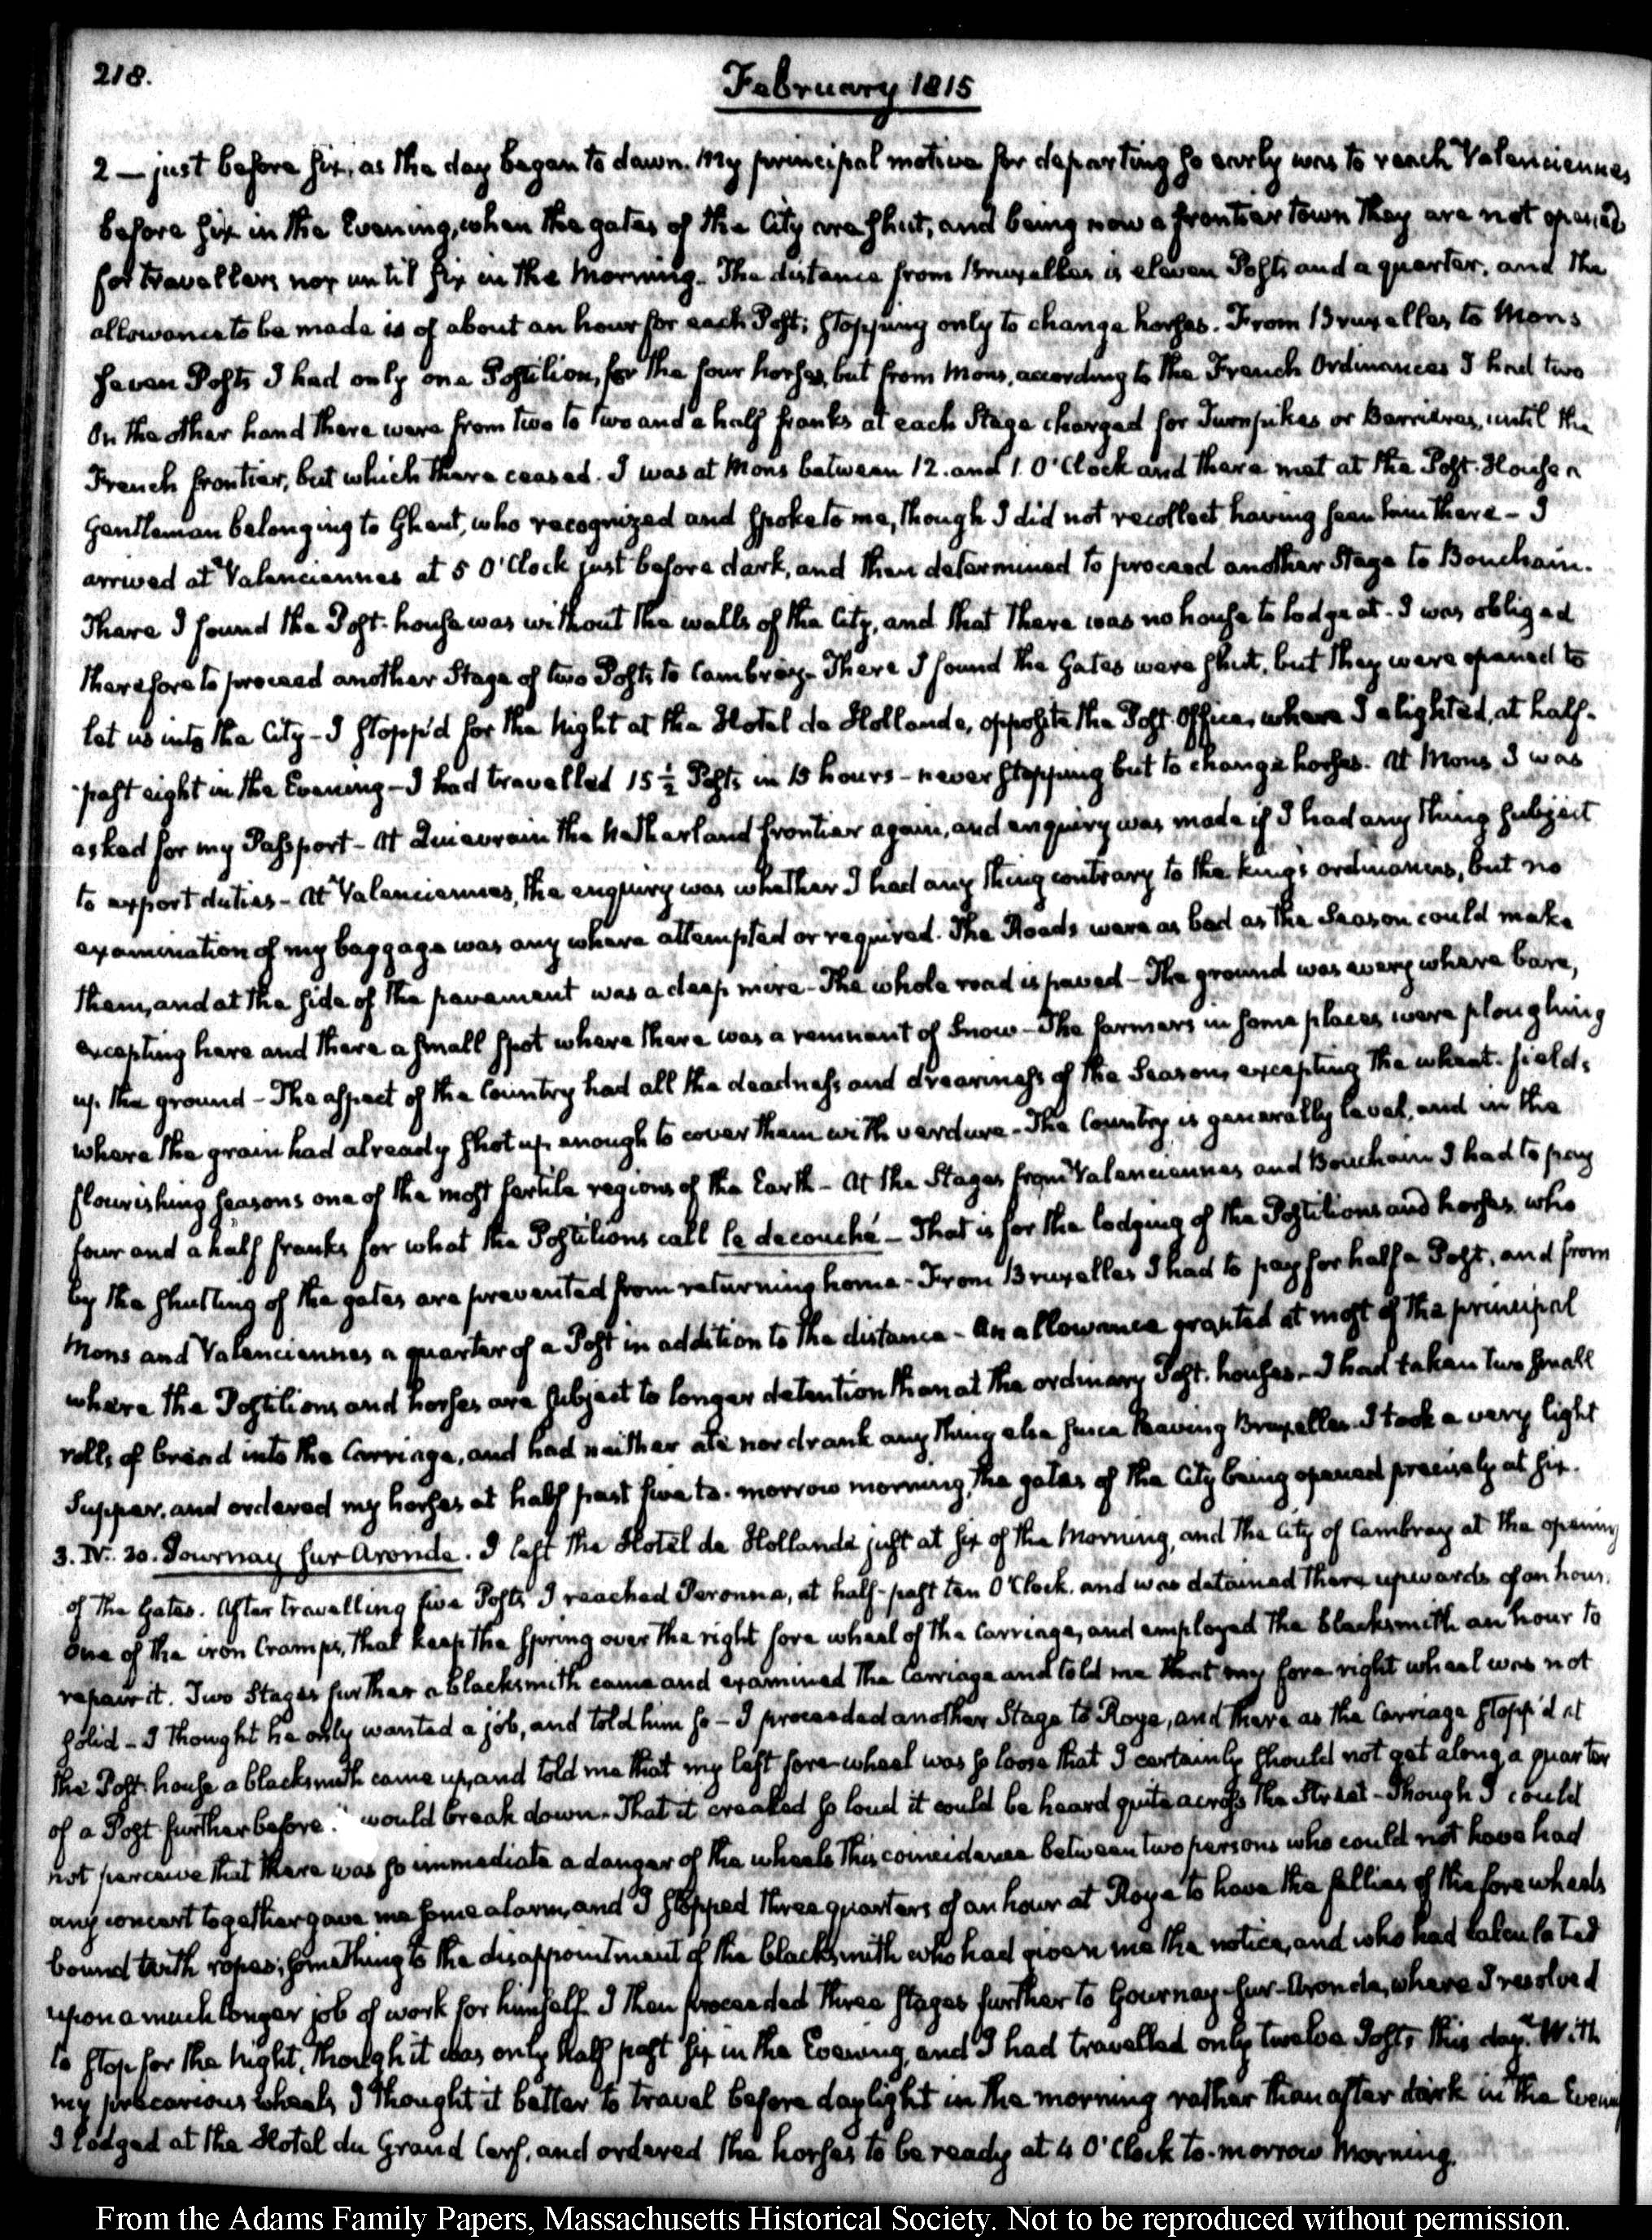 218.
February 1815
2 — just before six, as the day began to dawn. My principal motive for departing so early was to reach Valenciennes
before six in the Evening, when the gates of the City are shut, and being now a frontier town they are not opened
for travellers nor until six in the Morning. The distance from Bruxelles is eleven Posts and a quarter, and the
allowance to be made is of about an hour for each Post; stopping only to change horses. From Bruxelles to Mons
seven Posts I had only one Postilion, for the four horses, but from Mons, according to the French Ordinances I had two
On the other hand there were from two to two and a half franks at each Stage charged for Turnpikes or Barrieres, until the
French frontier, but which there ceased. I was at Mons between 12. and 1. O'Clock and there met at the Post-House a
Gentleman belonging to Ghent, who recognized and spoke to me, though I did not recollect having seen him there - I
arrived at Valenciennes at 5 O'Clock just before dark, and then determined to proceed another Stage to Bouchain.
There I found the Post-house was without the walls of the City, and that there was no house to lodge at. I was obliged
therefore to proceed another Stage of two Posts to Cambray. There I found the Gates were shut, but they were opened to
let us into the City - I stopp'd for the Night at the Hotel de Hollande, opposite the Post-Office, where I alighted, at half-
past eight in the Evening - I had travelled 15 1/2 Posts in 15 hours - never stopping but to change horses. At Mons I was
asked for my Passport - At Quievrain the Netherland frontier again, and enquiry was made if I had any thing subject
to export duties - At Valenciennes, the enquiry was whether I had any thing contrary to the king's ordinances, but no
examination of my baggage was any where attempted or required. The Roads were as bad as the Season could make
them, and at the side of the pavement was a deep mire - The whole road is paved - The ground was every where bare,
excepting here and there a small spot where there was a remnant of Snow - The farmers in some places were ploughing
up the ground - The aspect of the Country had all the deadness and dreariness of the Season, excepting the wheat-fields
where the grain had already shot up enough to cover them with verdure - The Country is generally level, and in the
flourishing seasons one of the most fertile regions of the Earth - At the Stages from Valenciennes and Bouchain I had to pay
four and a half franks for what the Postilions call le decouché - That is for the lodging of the Postilions and horses, who
by the shutting of the gates are prevented from returning home - From Bruxelles I had to pay for half a Post, and from
Mons and Valenciennes a quarter of a Post in addition to the distance - An allowance granted at most of the principal
where the Postilions and horses are subject to longer detention than at the ordinary Post-houses - I had taken two small
rolls of bread into the Carriage, and had neither ate nor drank any thing else since leaving Bruxelles. I took a very light
Supper, and ordered my horses at half past five to-morrow morning, the gates of the City being opened precisely at six.
3. IV. 30. Gournay sur Aronde. I left the Hotel de Hollande just at six of the Morning, and the City of Cambray at the opening
of the Gates. After travelling five Posts I reached Peronne, at half-past ten O'Clock. and was detained there upwards of an hour.
One of the iron Cramps, that keep the spring over the right fore wheel of the Carriage, and employed the blacksmith an hour to
repair it. Two Stages further a blacksmith came and examined the Carriage and told me that my fore right wheel was not
solid - I thought he only wanted a job, and told him so - I proceeded another Stage to Roye, and there as the Carriage stopp'd at
the Post-house a blacksmith came up, and told me that my left fore-wheel was so loose that I certainly should not get along a quarter
of a Post further before would break down - That it creaked so loud it could be heard quite across the Street - Though I could
not perceive that there was so immediate a danger of the wheels this coincidence between two persons who could not have had
any concert together gave me some alarm, and I stopped three quarters of an hour at Roye to have the fellies of the fore wheels
bound with ropes; something to the disappointment of the blacksmith who had given me the notice, and who had calculated
upon a much longer job of work for himself. I then proceeded three stages further to Gournay-sur-Aronde, where I resolved
to stop for the Night, though it was only half past six in the Evening, and I had travelled only twelve Posts this day. With
my precarious wheels I thought it better to travel before daylight in the morning rather than after dark in the Evening
I lodged at the Hotel du Grand Cerf, and ordered the horses to be ready at 4 O'Clock to-morrow Morning.
From the Adams Family Papers, Massachusetts Historical Society. Not to be reproduced without permission.